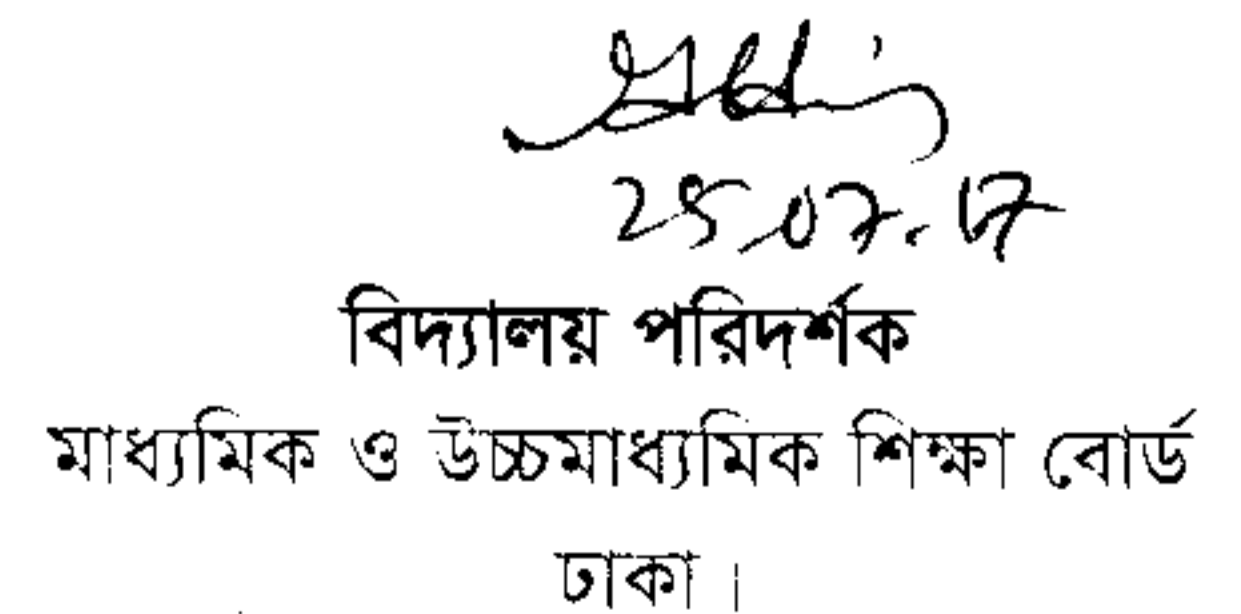 25.07.17
বিদ্যালয় পরিদর্শক
মাধ্যমিক ও উচ্চমাধ্যমিক শিক্ষা বোর্ড
ঢাকা।